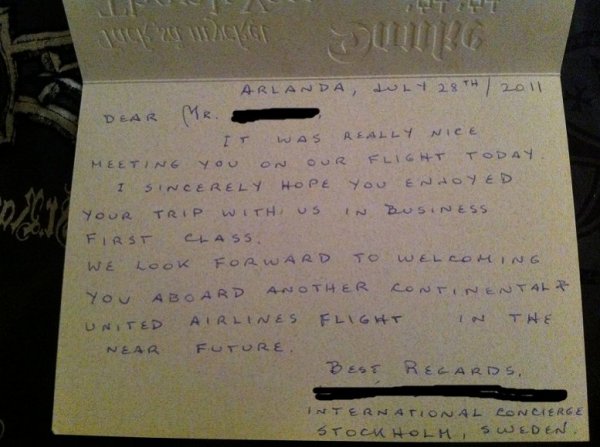 Thank You
Tack så mycket Danke
ARLANDA, JULY 28TH / 2011
DEAR MR.
IT WAS REALLY NICE
MEETING YOU ON OUR FLIGHT TODAY.
I SINCERELY HOPE YOU ENJOYED
YOUR TRIP WITH US IN BUSINESS
FIRST CLASS.
WE LOOK FORWARD TO WELCOMING
YOU ABOARD ANOTHER CONTINENTAL &
UNITED AIRLINES FLIGHT IN THE
NEAR FUTURE.
BEST REGARDS,
INTERNATIONAL CONCIERGE
STOCKHOLM, SWEDEN.